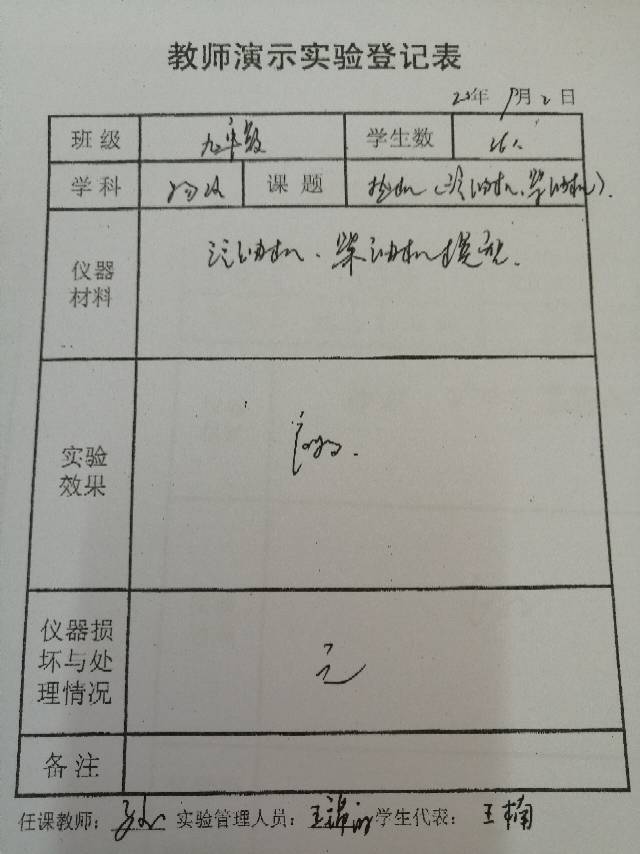 教师演示实验登记表
年 月 2 日
班级 九年级 学生数
学科 物理 课题 热机（汽油机、柴油机）.
仪器材料 汽油机、柴油机模型.
实验效果
仪器损坏与处理情况 无
备注
任课教师： 实验管理人员：王 学生代表：王楠